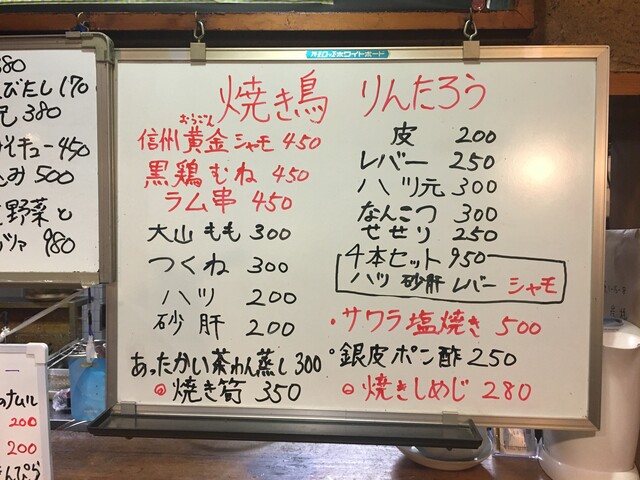 焼き鳥 りんたろう
おうごん
信州黄金シャモ 450
黒鶏むね 450
ラム串 450
大山もも 300
つくね 300
ハツ 200
砂肝 200
あったかい茶わん蒸し 300
焼き筍 350
皮 200
レバー 250
ハツ元 300
なんこつ 300
せせり 250
4本セット 950
ハツ 砂肝 レバー シャモ
・サワラ塩焼き 500
銀皮ポン酢 250
焼きしめじ 280
380
びたし 170
380
キュー 450
500
野菜と
980
ナムル
200
200
んぴら